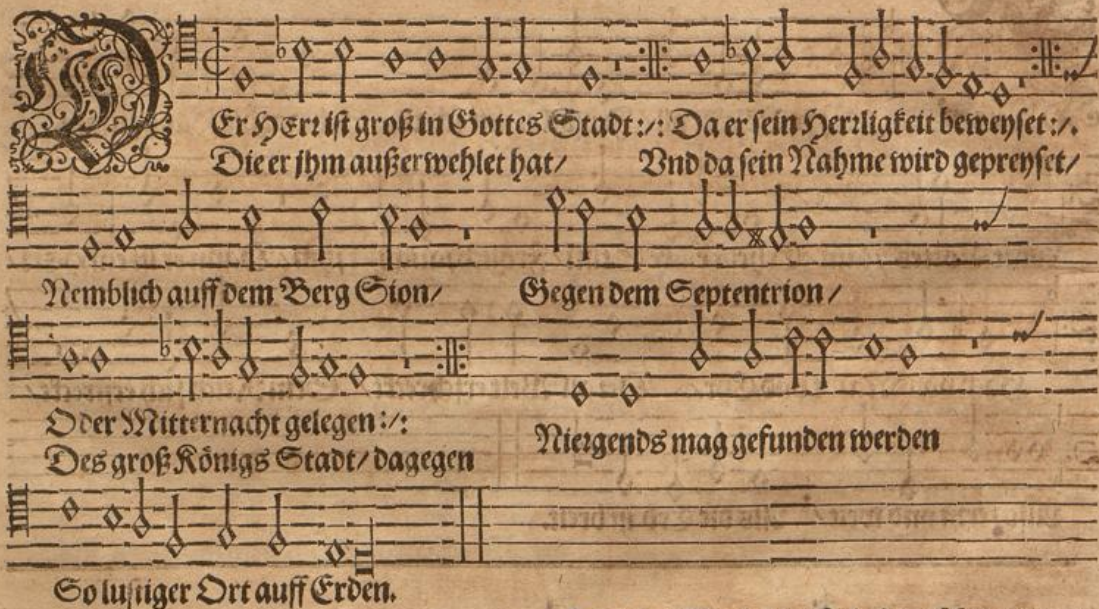 DEr HErr ist groß in Gottes Stadt :/: Da er sein Herrligkeit beweyset :/.
Die er jhm außerwehlet hat/ Vnd da sein Nahme wird gepreyset/
Nemblich auff dem Berg Sion/ Gegen dem Septentrion/
Oder Mitternacht gelegen :/:
Des groß Königs Stadt/ dagegen
Niergends mag gefunden werden
So lustiger Ort auff Erden.